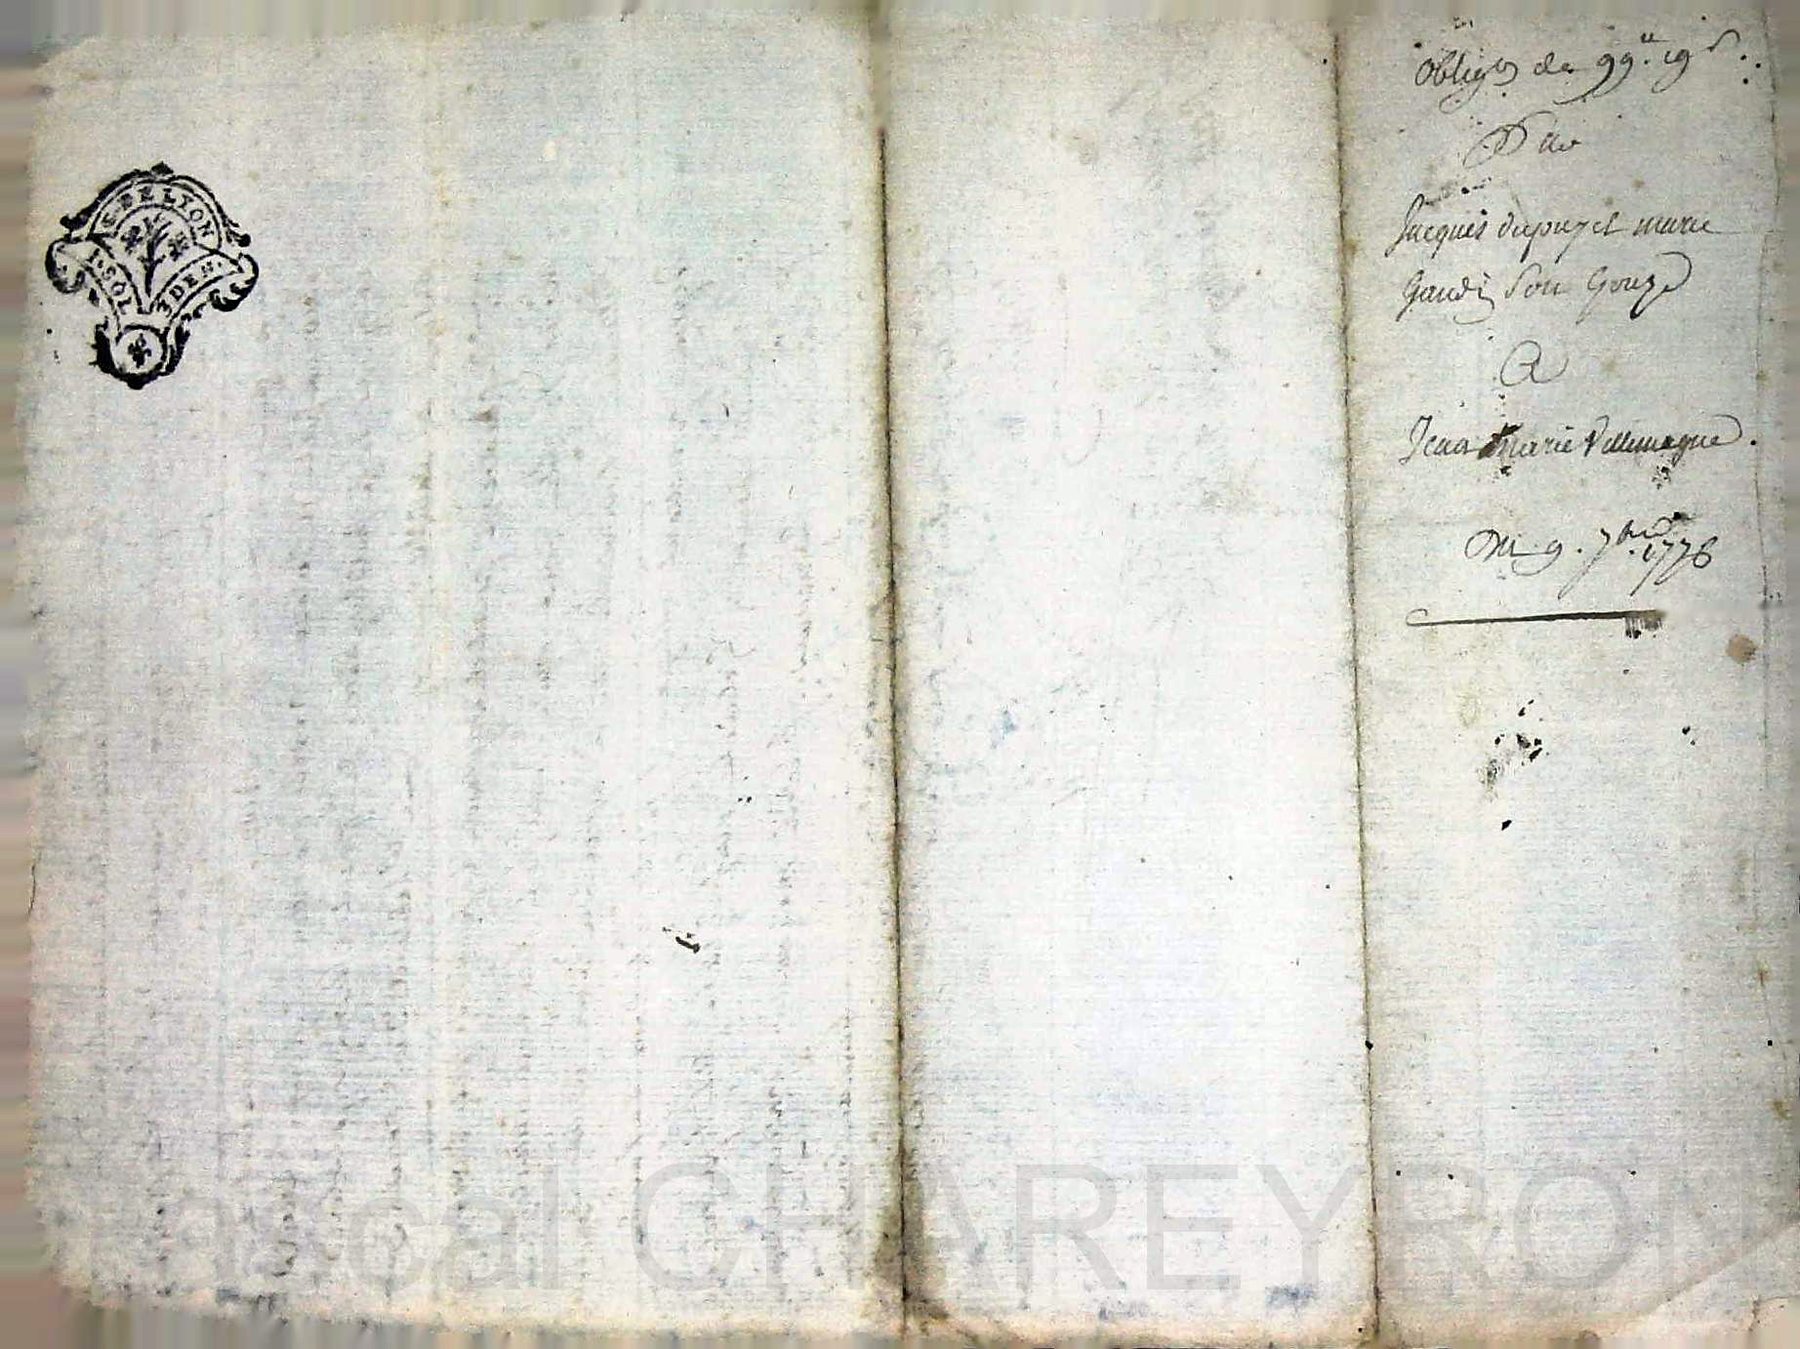 G. DE LYON
1. SOL 3 DEN.
obligon de 99ᵗᵗ 19ˢ
Par
Jacques dupuy et marie
Gendre
A
Jean marie Villemagne.
Du 9. 7bre 1776
Pascal CHAREYRON